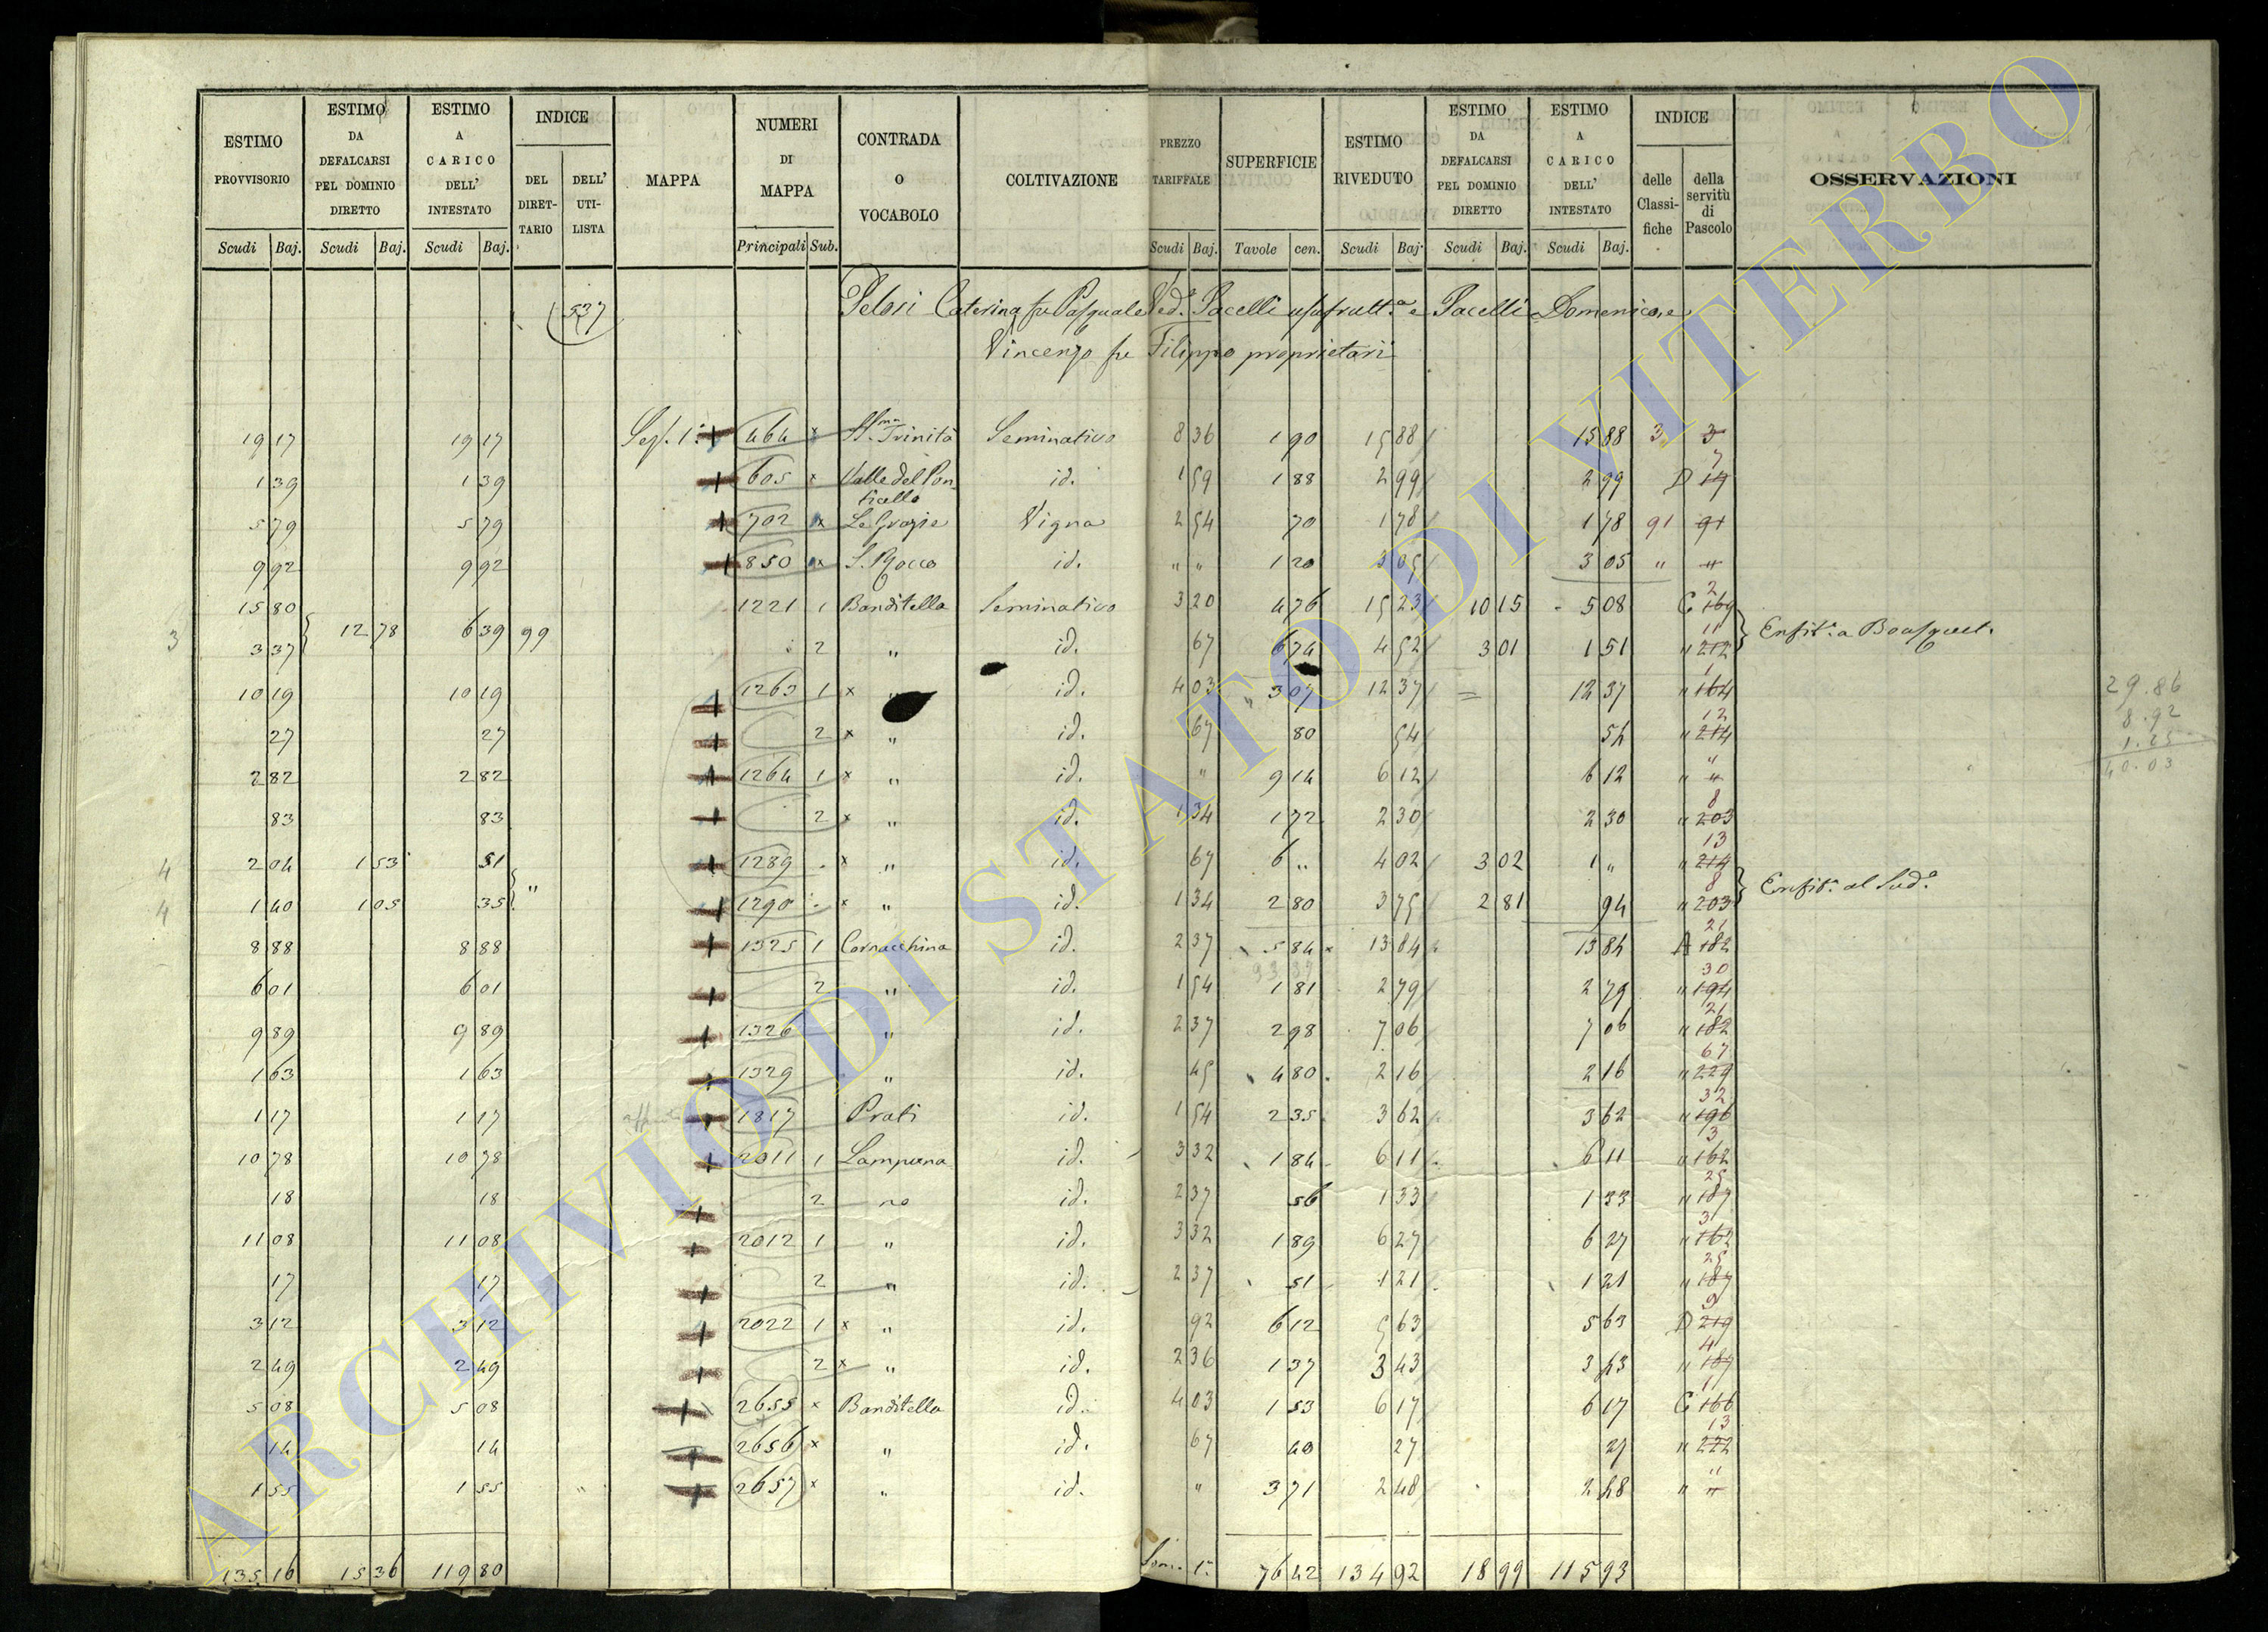 ESTIMO PROVVISORIO | ESTIMO DA DEFALCARSI PEL DOMINIO DIRETTO | ESTIMO A CARICO DELL' INTESTATO | INDICE | MAPPA | NUMERI DI MAPPA | CONTRADA O VOCABOLO | COLTIVAZIONE | PREZZO TARIFFALE | SUPERFICIE | ESTIMO RIVEDUTO | ESTIMO DA DEFALCARSI PEL DOMINIO DIRETTO | ESTIMO A CARICO DELL' INTESTATO | INDICE | OSSERVAZIONI
DEL DIRETTARIO | DELL' UTILISTA | delle Classifiche | della servitù di Pascolo
Scudi Baj. | Scudi Baj. | Scudi Baj. | Principali Sub. | Scudi Baj. | Tavole cen. | Scudi Baj. | Scudi Baj. | Scudi Baj.
537 Pelosi Caterina fu Pasquale Ved.a Pacelli usufrutt.a e Pacelli Domenico, e
Vincenzo fu Filippo proprietari
19 17 | 19 17 | Sez. 1.a | 464 x | SS.ma Trinità | Seminativo | 8 36 | 1 90 | 15 88 | 15 88 | 3 | 3
1 39 | 1 39 | 605 x | Valle del Pon | id. | 1 59 | 1 88 | 2 99 | 2 99 | D 19 7
ticello
5 79 | 5 79 | 702 x | Le Grazie | Vigna | 2 54 | 70 | 1 78 | 1 78 | 91 | 91
9 92 | 9 92 | 850 x | S. Rocco | id. | " " | 1 20 | 3 05 | 3 05 | " | "
15 80 | 1221 1 | Banditella | Seminativo | 3 20 | 4 76 | 15 23 | 10 15 | 5 08 | C 169 2
3 | 12 78 | 6 39 | 99 | Enfit.a a Bousquet.
3 37 | 2 | " | id. | 67 | 6 74 | 4 52 | 3 01 | 1 51 | " 212 11
10 19 | 10 19 | 1263 1 x | id. | 4 03 | 3 07 | 12 37 | = | 12 37 | " 164 1
27 | 27 | 2 x | " | id. | 67 | 80 | 54 | 54 | " 214 12
2 82 | 2 82 | 1264 1 x | " | id. | " | 9 14 | 6 12 | 6 12 | " " "
83 | 83 | 2 x | " | id. | 1 34 | 1 72 | 2 30 | 2 30 | " 203 8
4 | 2 04 | 1 53 | 51 | 1289 x | " | id. | 67 | 6 " | 4 02 | 3 02 | 1 " | " 214 13
" | Enfit.a al Sud.o
4 | 1 40 | 1 05 | 35 | 1290 x | " | id. | 1 34 | 2 80 | 3 75 | 2 81 | 94 | " 203 8
8 88 | 8 88 | 1325 1 | Cornacchina | id. | 2 37 | 5 84 | 13 84 | 13 84 | A 182 21
6 01 | 6 01 | 2 | " | id. | 1 54 | 1 81 | 2 79 | 2 79 | " 194 30
9 89 | 9 89 | 1326 | " | id. | 2 37 | 2 98 | 7 06 | 7 06 | " 182 21
1 63 | 1 63 | 1329 | " | id. | 45 | 4 80 | 2 16 | 2 16 | " 229 67
1 17 | 1 17 | 1817 | Prati | id. | 1 54 | 2 35 | 3 62 | 3 62 | " 196 32
10 78 | 10 78 | 2011 1 | Lampana | id. | 3 32 | 1 84 | 6 11 | 6 11 | " 162 3
18 | 18 | 2 | no | id. | 2 37 | 56 | 1 33 | 1 33 | " 187 25
11 08 | 11 08 | 2012 1 | " | id. | 3 32 | 1 89 | 6 27 | 6 27 | " 162 3
17 | 17 | 2 | " | id. | 2 37 | 51 | 1 21 | 1 21 | " 187 25
3 12 | 3 12 | 2022 1 x | " | id. | 92 | 6 12 | 5 63 | 5 63 | D 219 9
2 49 | 2 49 | 2 x | " | id. | 2 36 | 1 37 | 3 43 | 3 43 | " 187 4
5 08 | 5 08 | 2655 x | Banditella | id. | 4 03 | 1 53 | 6 17 | 6 17 | C 166 1
14 | 14 | 2656 x | " | id. | 67 | 40 | 27 | 27 | " 222 13
1 55 | 1 55 | " | 2657 x | " | id. | " | 3 71 | 2 48 | 2 48 | " " "
135 16 | 15 36 | 119 80 | Som. 1.a | 76 42 | 134 92 | 18 99 | 115 93
29.86
8.92
1.25
40.03
ARCHIVIO DI STATO DI VITERBO